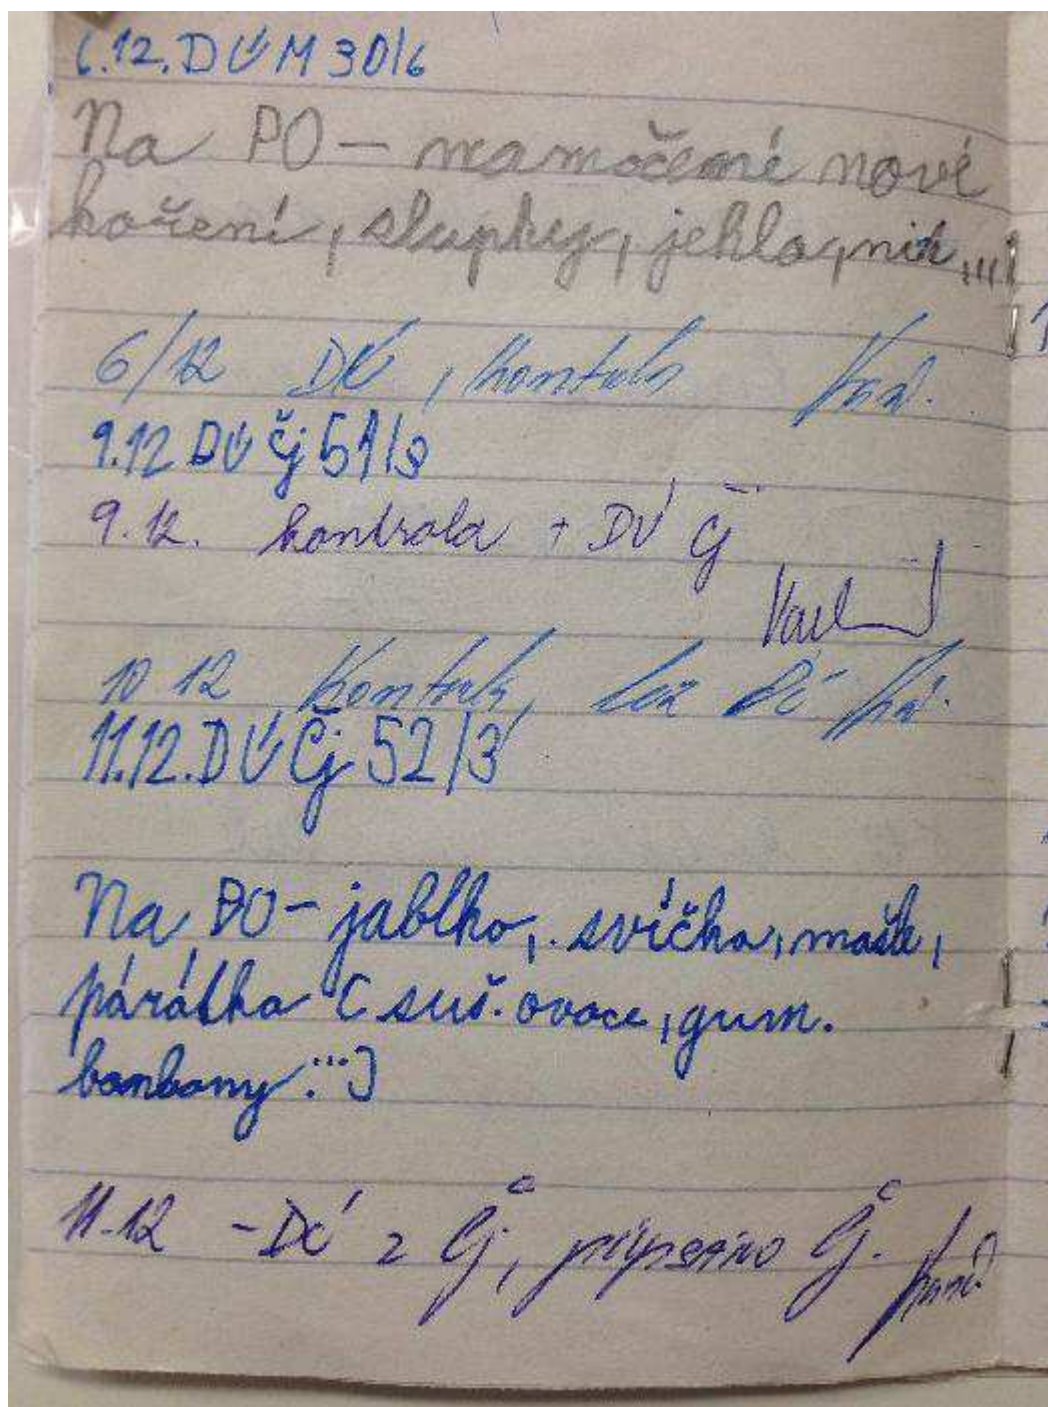 6.12. DÚ M 30/6
Na PO – namočené nové
koření, slupky, jehla, nit, ...
6/12 DÚ, kontrola
9.12 DÚ Čj 51/3
9.12. kontrola + DÚ Čj
10 12 Kontrola, bez DÚ
11.12. DÚ Čj 52/3
Na PO – jablko, svíčka, mašle,
párátka (suš. ovoce, gum.
bonbony ...)
11.12 – DÚ z Čj, Čj.